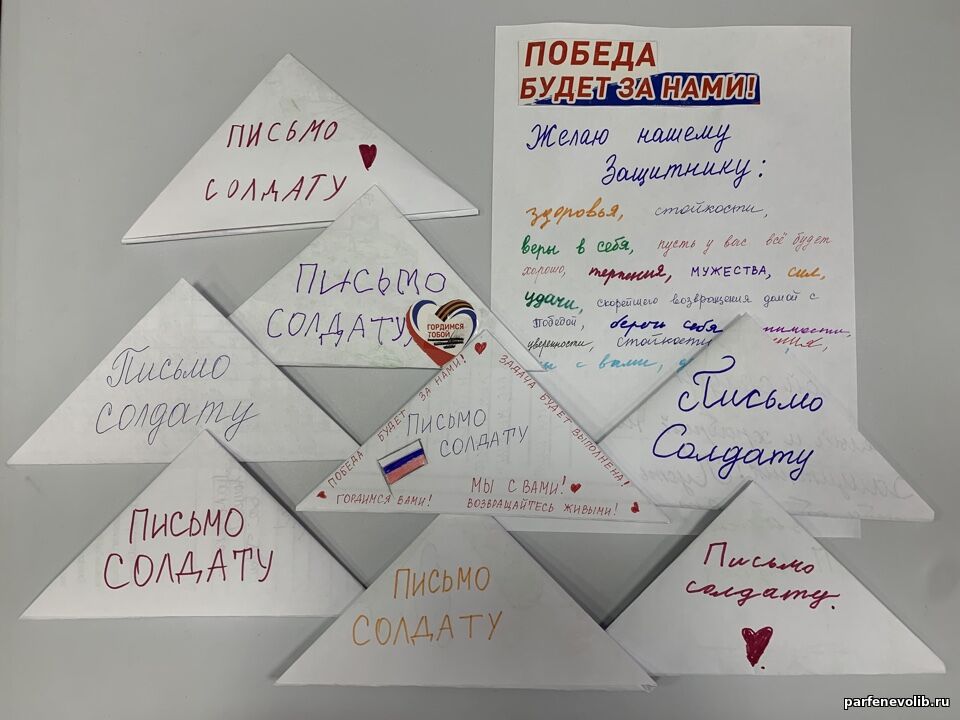 ПОБЕДА
БУДЕТ ЗА НАМИ!
Желаю нашему
Защитнику:
здоровья, стойкости,
веры в себя, пусть у вас всё будет
хорошо, терпения, МУЖЕСТВА, сил,
удачи, скорейшего возвращения домой с
Победой, береги себя
уверенности, стойкости
с вами,
ПИСЬМО
СОЛДАТУ
ПИСЬМО
СОЛДАТУ
ГОРДИМСЯ
ТОБОЙ
Письмо
солдату
ПОБЕДА БУДЕТ ЗА НАМИ!
ЗАДАЧА БУДЕТ ВЫПОЛНЕНА!
ПИСЬМО
СОЛДАТУ
МЫ С ВАМИ!
ГОРДИМСЯ ВАМИ!
ВОЗВРАЩАЙТЕСЬ ЖИВЫМИ!
Письмо
Солдату
ПИСЬМО
СОЛДАТУ
ПИСЬМО
СОЛДАТУ
Письмо
солдату.
parfenevolib.ru